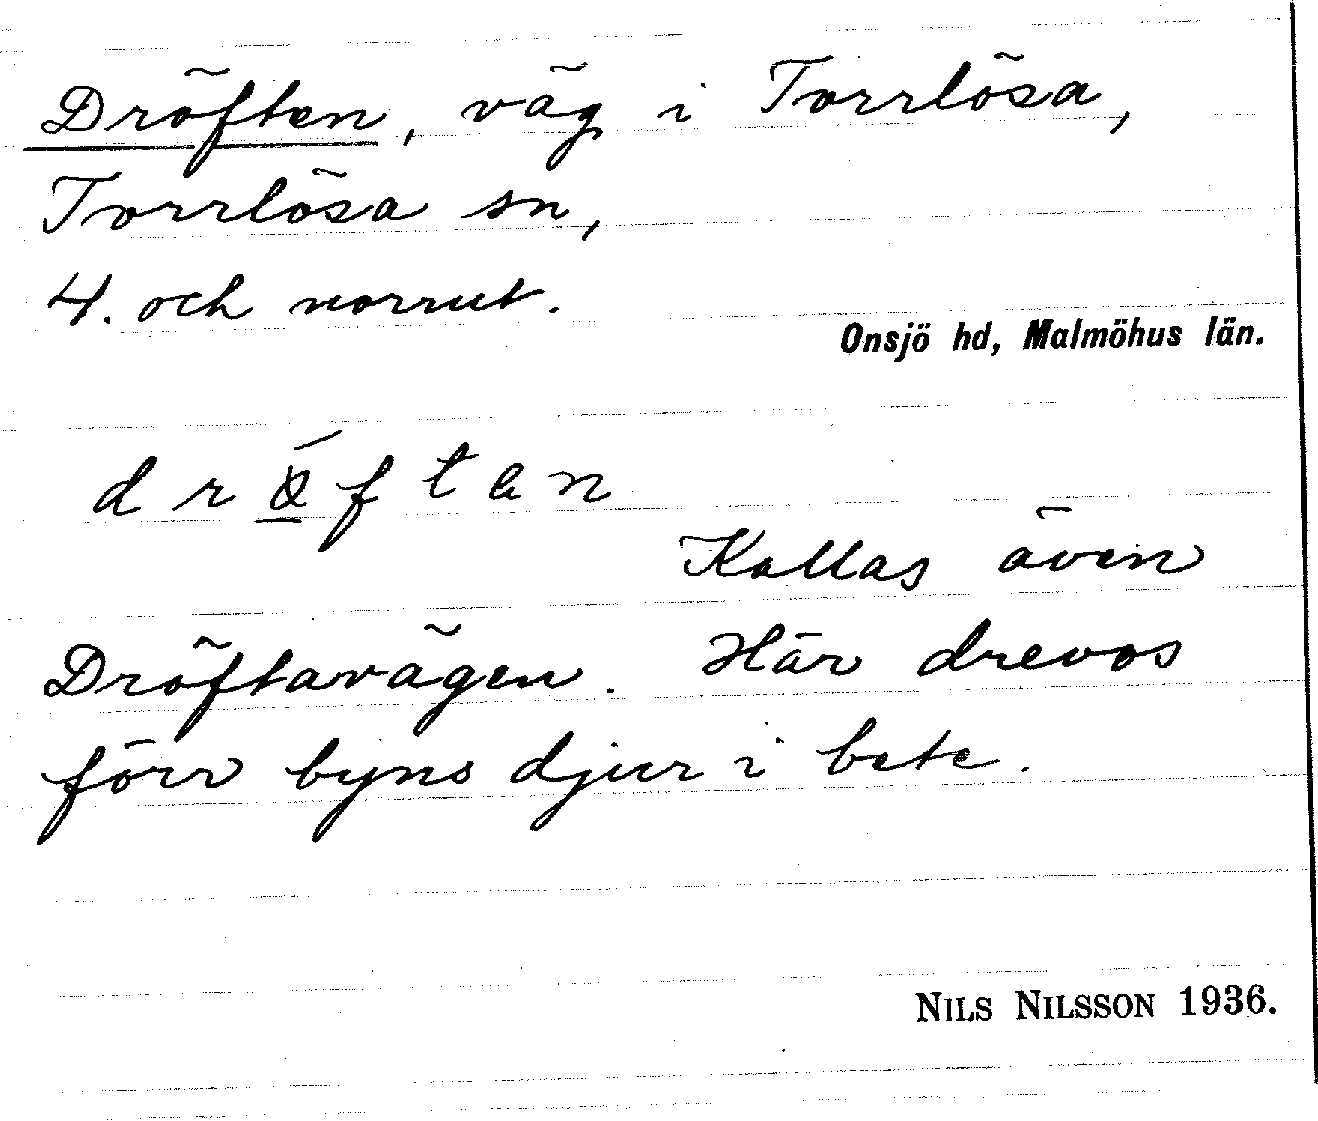 Dröften, väg i Torrlösa,
Torrlösa sn,
4. och norrut.
Onsjö hd, Malmöhus län.
drǿften
Kallas även
Dröftavägen. Här drevos
förr byns djur i bete.
NILS NILSSON 1936.